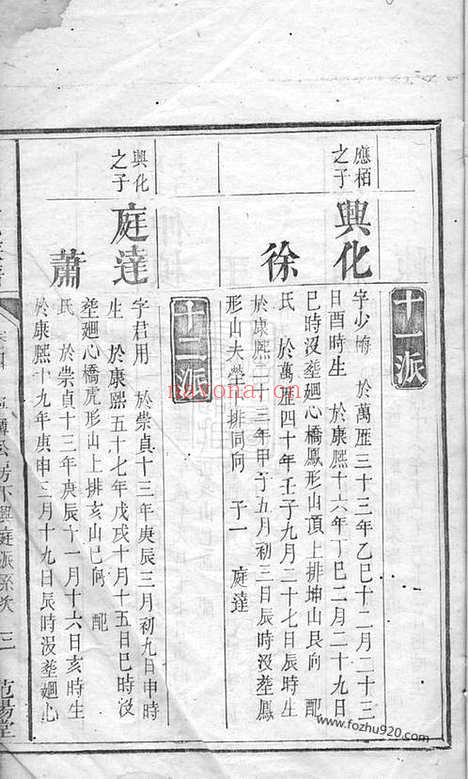 十一派
應栢之子
興化
字少梅 於萬厯三十三年乙巳十二月二十三
日酉時生 於康熙十六年丁巳二月二十九日
巳時沒塟廻心橋鳳形山頂上排坤山艮向 配
徐
氏 於萬厯四十年壬子九月二十七日辰時生
於康熙二十三年甲子五月初三日辰時沒塟鳳
形山夫塋上排同向 子一 庭達
十二派
興化之子
庭達
字君用 於崇貞十三年庚辰三月初九日申時
生 於康熙五十七年戊戌十月十五日巳時沒
塟廻心橋虎形山上排亥山巳向 配
蕭
氏 於崇貞十三年庚辰十一月十六日亥時生
於康熙十九年庚申三月十九日辰時沒塟廻心
房下興庭派系次 三 范陽堂
nayona.cn
www.fozhu920.com